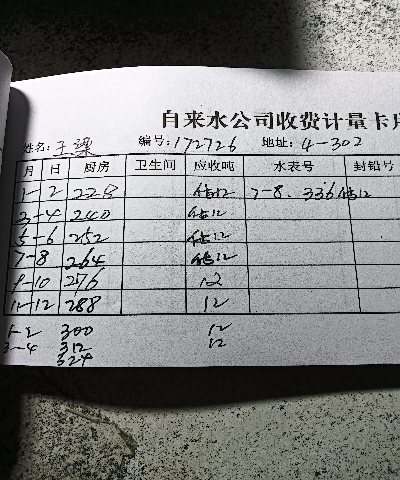 自来水公司收费计量卡
姓名: 王梁 编号: 172726 地址: 4-302
月 日 厨房 卫生间 应收吨 水表号 封铅号
1-2 228 估12 7-8. 336 估12
3-4 240 估12
5-6 252 估12
7-8 264 估12
9-10 276 12
11-12 288 12
1-2 300 12
3-4 312 12
324